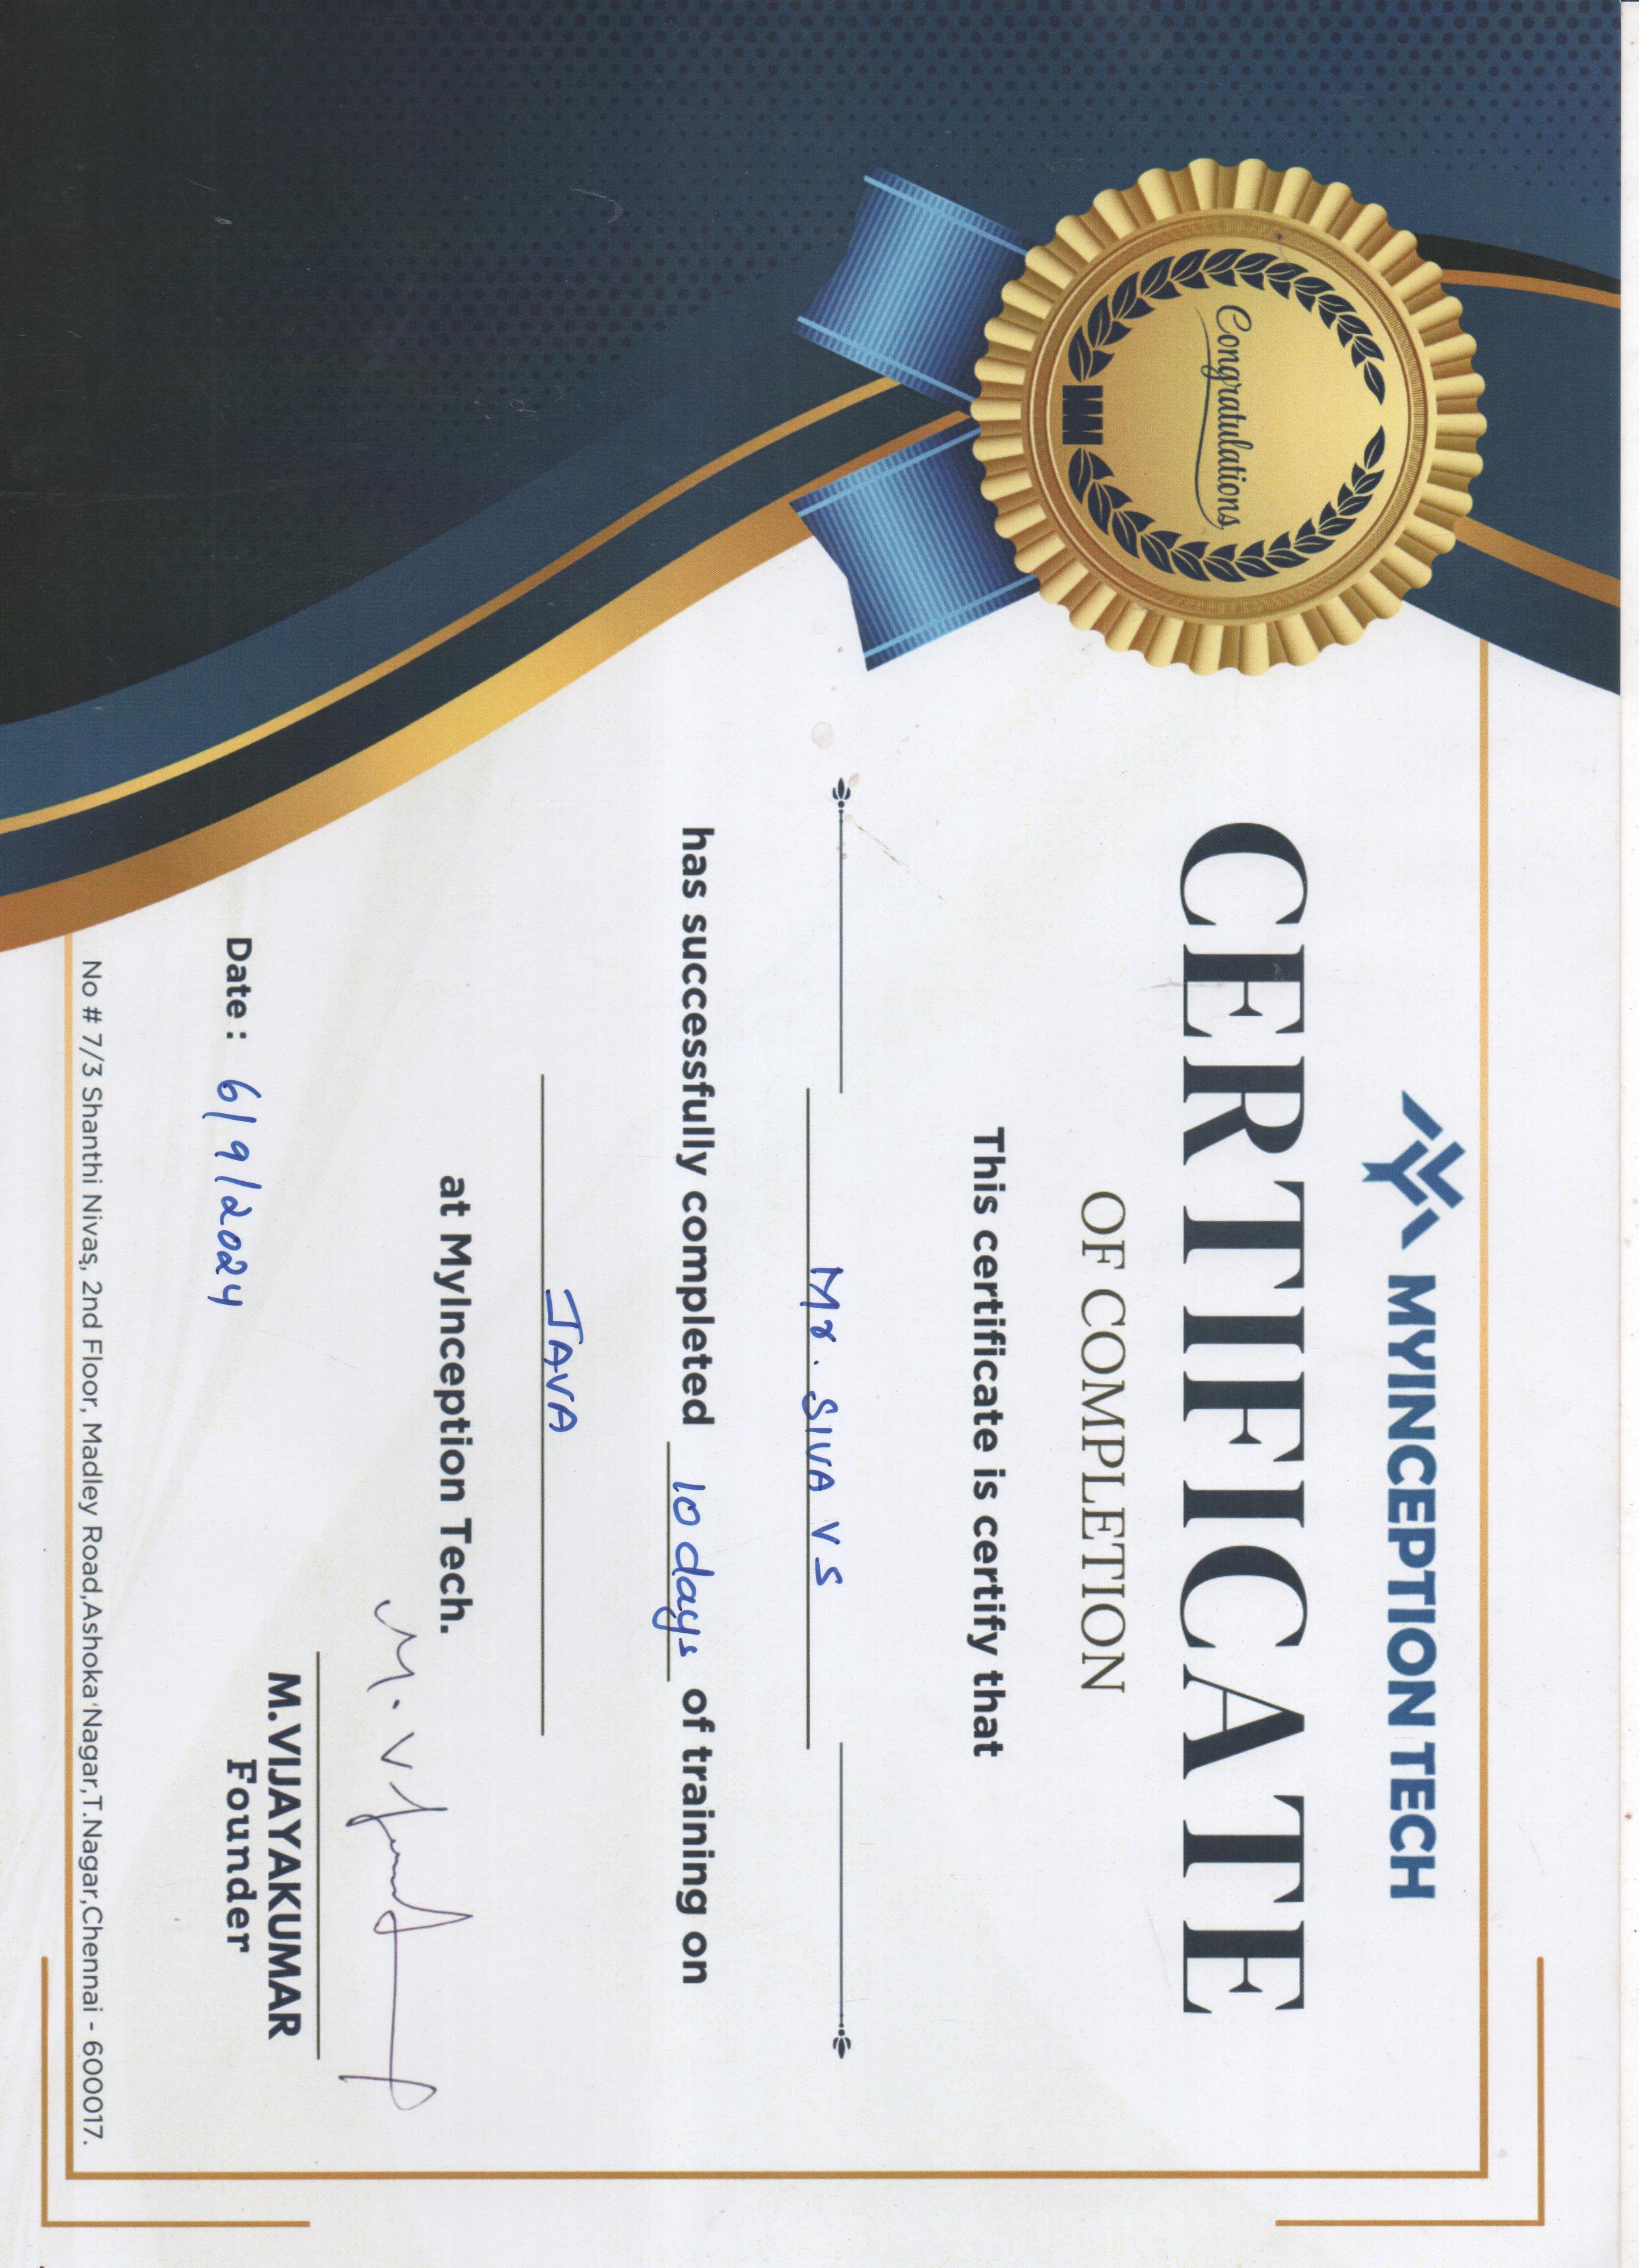 Congratulations
MYINCEPTION TECH
CERTIFICATE
OF COMPLETION
This certificate is certify that
Mr. SIVA V S
has successfully completed 10 days of training on
JAVA
at MyInception Tech.
M.VIJAYAKUMAR
Founder
Date : 6/9/2024
No # 7/3 Shanthi Nivas, 2nd Floor, Madley Road,Ashoka Nagar,T.Nagar,Chennai - 600017.